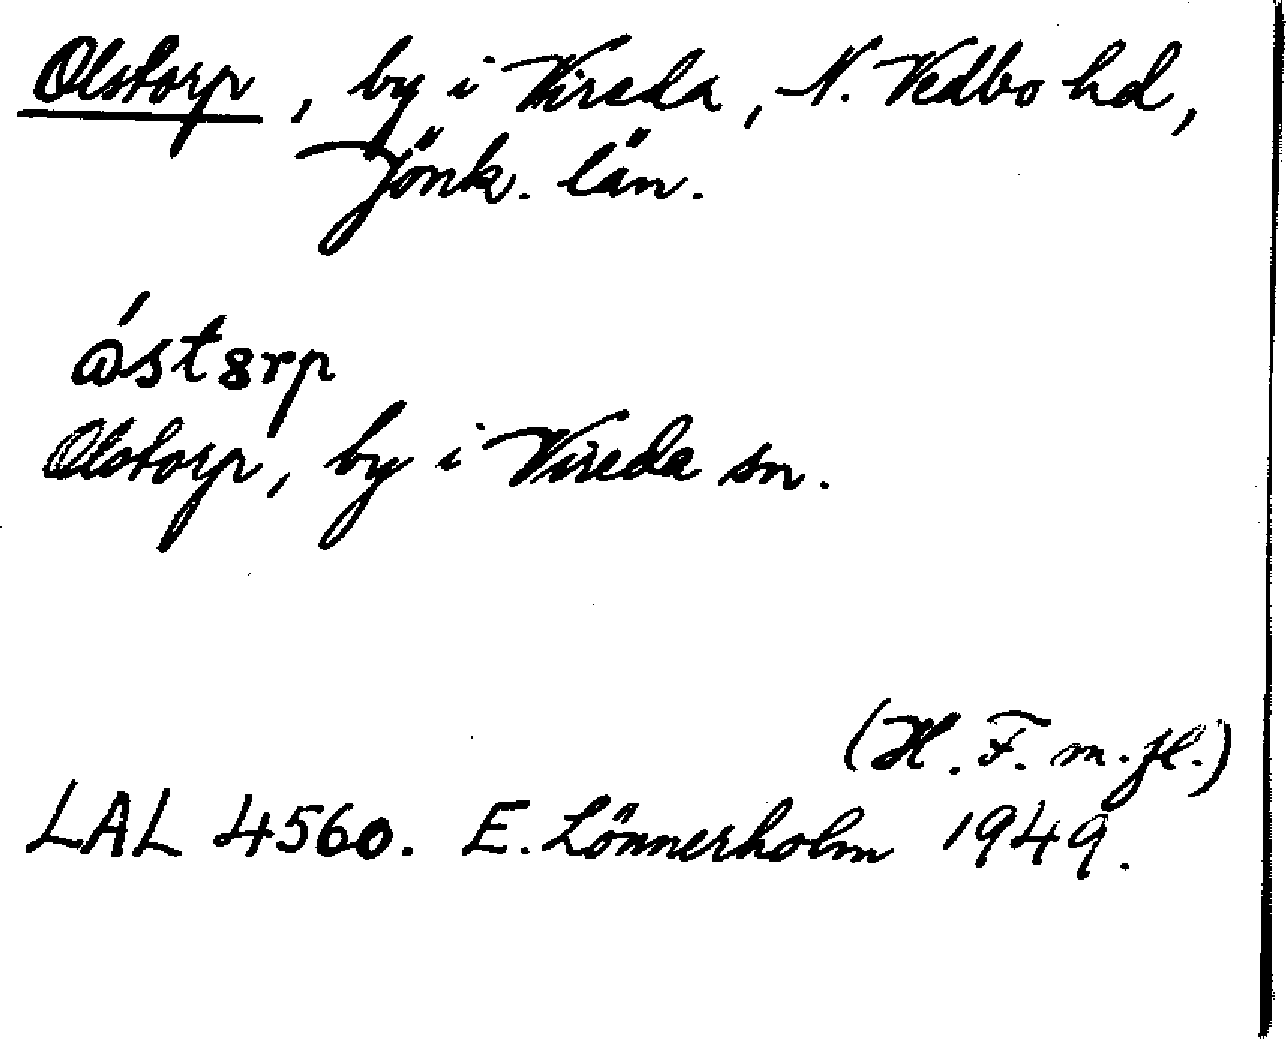 Olstorp, by i Vireda, N. Vedbo hd,
Jönk. län.
ó̀st8rp
Olstorp, by i Vireda sn.
(H. F. m. fl.)
LAL 4560. E. Lönnerholm 1949.